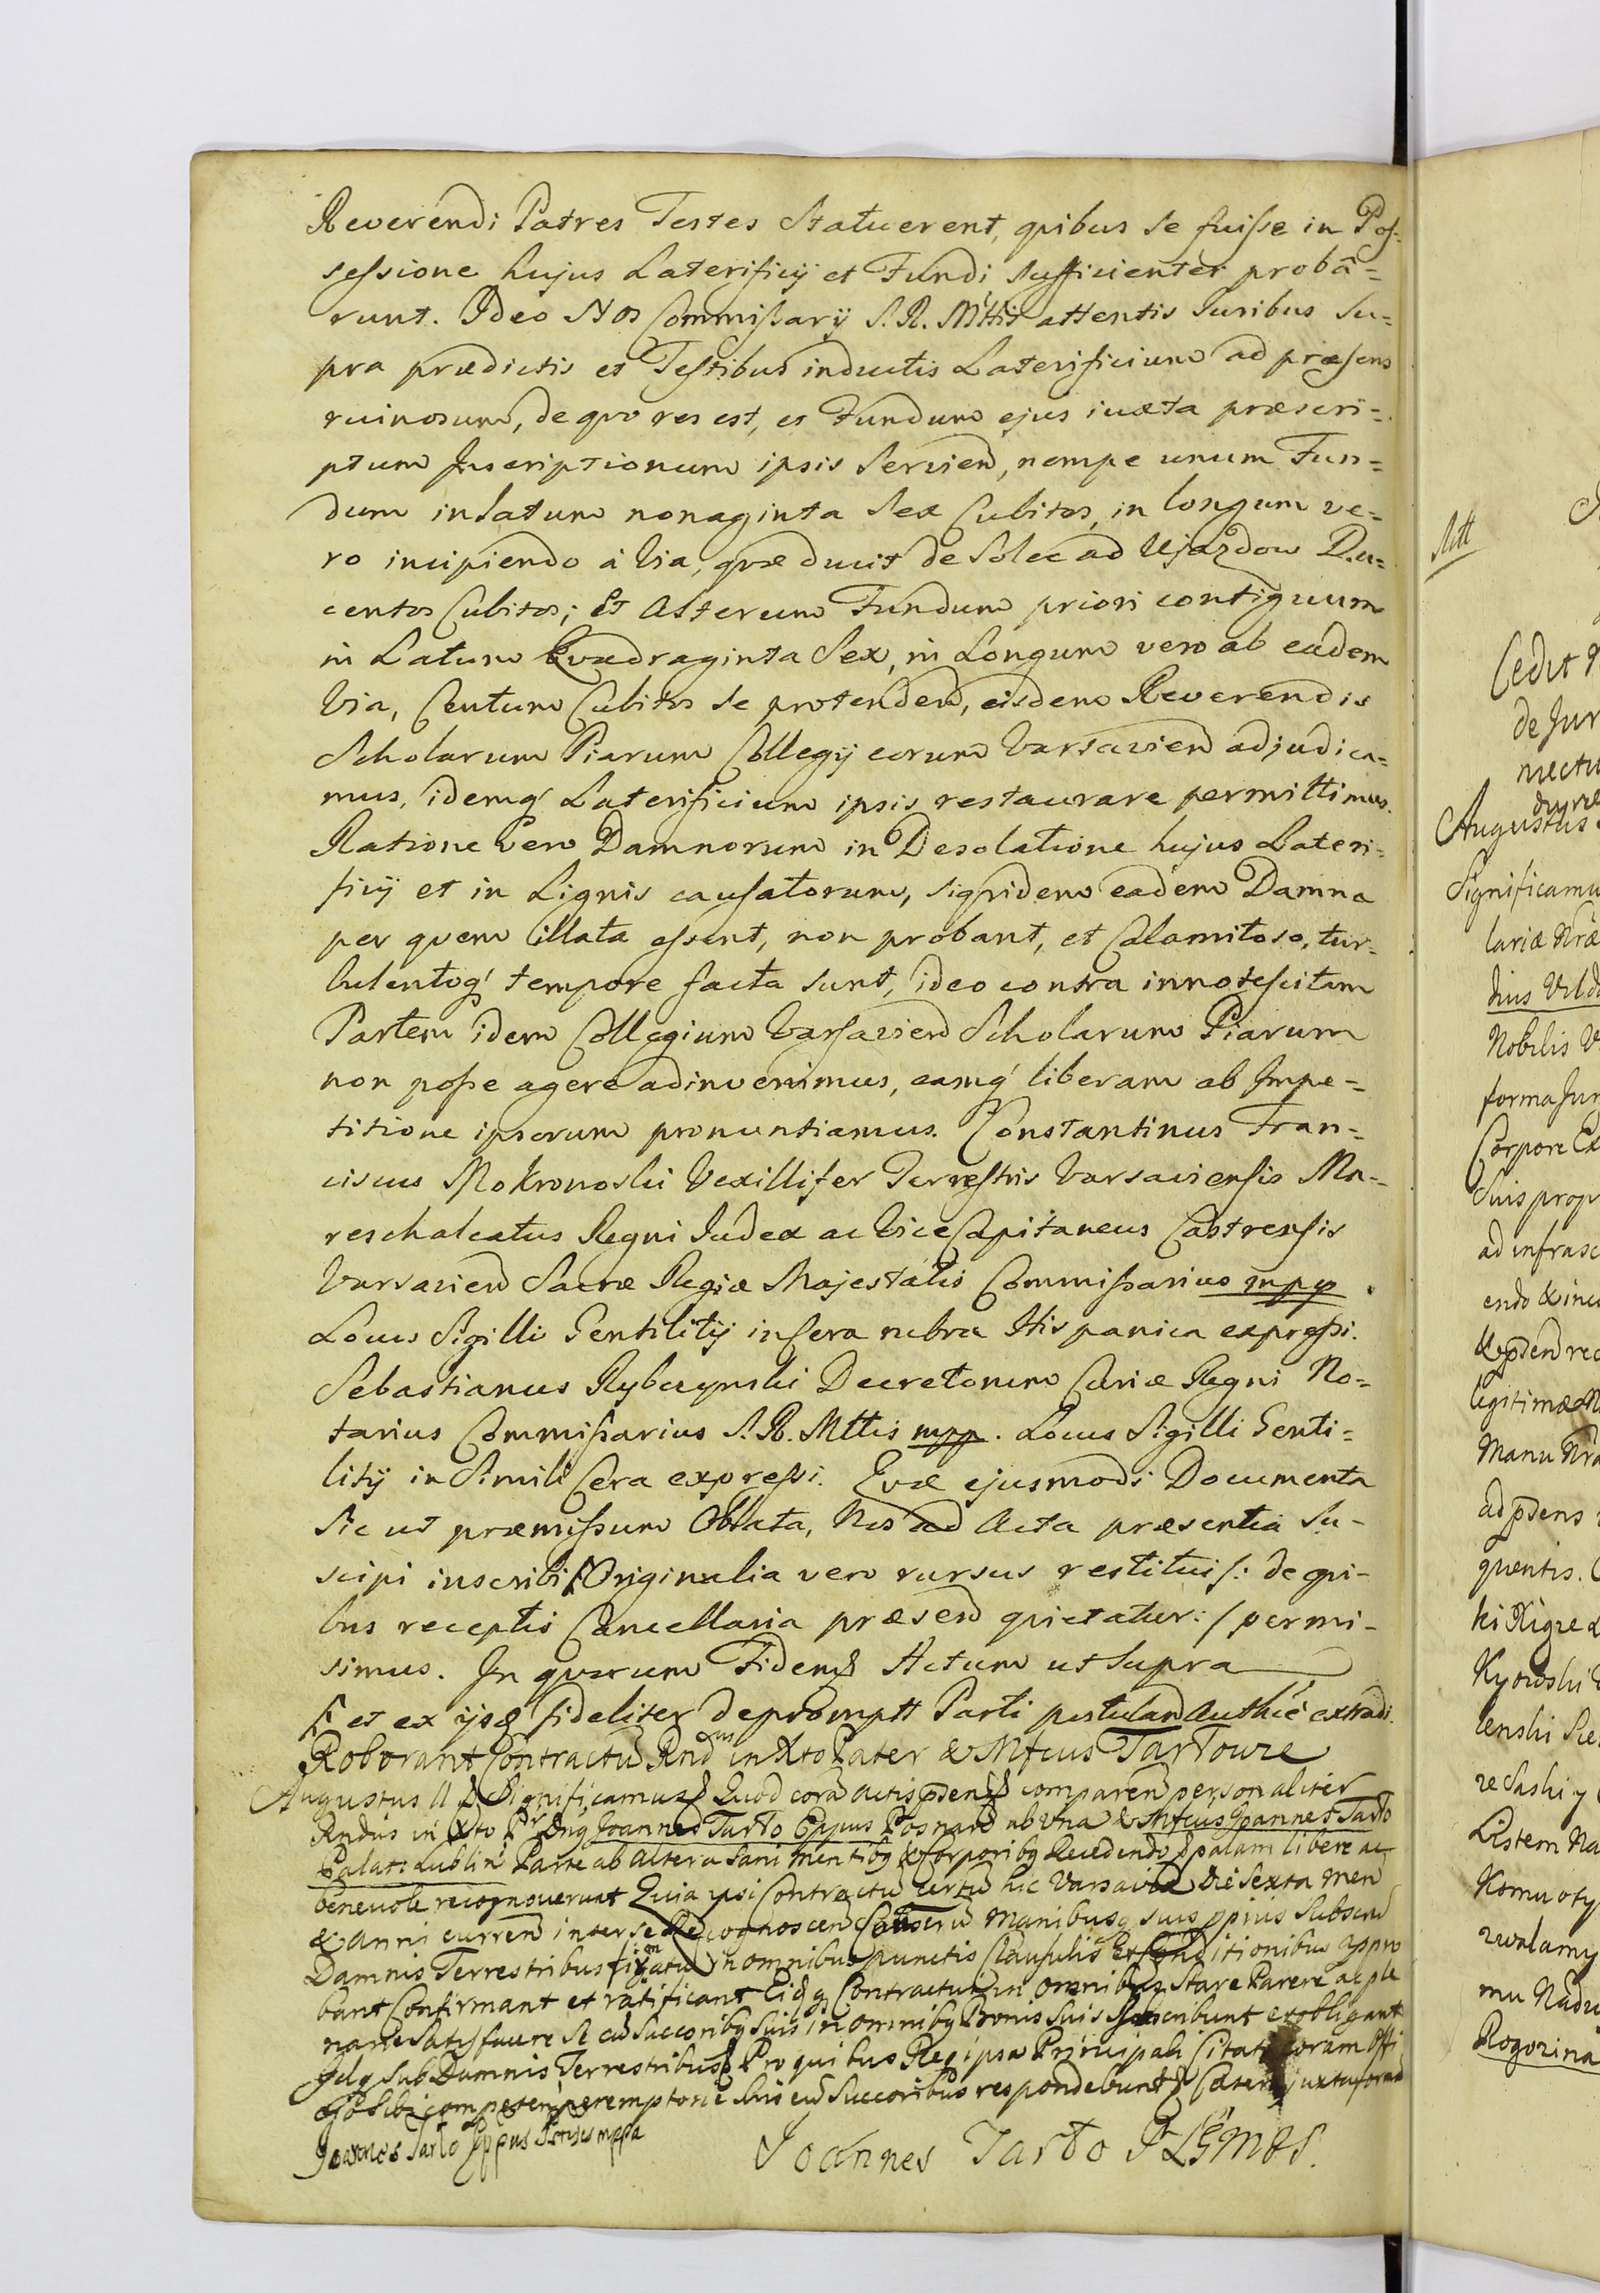 Reverendi Patres Testes Statuerent, quibus se fuisse in Pos-
sessione hujus Laterificij et Fundi sufficienter proba=
runt. Ideo Nos Commissarij S. R. Mttis attentis Juribus su=
pra prædictis et Testibus inductis Laterificium ad præsens
ruinosum, de quo res est, et Fundum ejus iuxta præscri=
ptum Inscriptionum ipsis Servien, nempe unum Fun=
dum in latum nonaginta Sex Cubitos, in longum ve=
ro incipiendo à Via, quæ ducit de Solec ad Ujazdow Du=
centos Cubitos; Et Alterum Fundum priori contiguum
in Latum Quadraginta Sex, in Longum vero ab eadem
Via, Centum Cubitos se protenden, eisdem Reverendis
Scholarum Piarum Collegij eorum Varsavien adjudica=
mus, idemq Laterificium ipsis restaurare permittimus.
Ratione vero Damnorum in Desolatione hujus Lateri=
ficij et in Lignis causatorum, siquidem eadem Damna
per quem illata essent, non probant, et Calamitoso, tur=
bulentoq tempore facta sunt, ideo contra innotescitam
Partem idem Collegium Varsavien Scholarum Piarum
non posse agere adinvenimus, eamq liberam ab Impe=
titione ipsorum pronuntiamus. Constantinus Fran=
ciscus Mokronoski Vexillifer Terrestris Varsaviensis Ma=
reschalcatus Regni Judex ac Vice Capitaneus Castrensis
Varsavien Sacræ Regiæ Majestatis Commissarius mpp.
Locus Sigilli Gentilitij in cera rubra Hispanica expressi.
Sebastianus Rybczynski Decretorum Curiæ Regni No=
tarius Commissarius S. R. Mttis mpp. Locus Sigilli Genti=
litij in Simili Cera expressi. Quæ ejusmodi Documenta
Sic ut præmissum Oblata, Nos ad Acta præsentia Su-
scipi inscribi Originalia vero rursus restitui /: de qui-
bus receptis Cancellaria præsen quietatur: / permi-
simus. In quorum Fidem Actum ut Supra
et ex ijsq fideliter depromptt Parti postulan Authce extradi.
Roborant Contractu Rndus in Xto Pater & Mfcus Tarłowie
Augustus II Significamus Quod cora Actis psentib comparen personaliter
Rndus in Xto Pr Dng Joannes Tarło Eppus Posnan ab Una & Mfcus Joannes Tarło
Palat: Lublin Parte ab altera sani mentibq & Corporibq Recedendo palam libere ac
benevole recognoverunt Quia ipsi Contractu certu hic Varsaviæ die Sexta Men
& anni curren inter se Recognoscen manibusq suis ppius Subscru
Damnis Terrestribus in omnibus punctis Clausulis Et Conditionibus appro
bant Confirmant et ratificant Eidq Contractui in omnibq Stare Parere ac ple
narie Satisfacere se cu Succoribq Suis in omnibq Bonis Suis Inscribunt et obligant
Idq Sub Damnis Terrestribus Pro quibus Reg ipsa Principali Citati coram Offi
competen peremptorie Suis cu Succoribus respondebunt juxta formā
Joannes Tarło Eppus mppa
Joannes Tarło
Att
Cedit
de Jur
Augustus
Significamu
lariæ Nræ
Nobilis V
forma Jur
Corpore Ex
Suis prop
ad infrasc
Manu Nra
ad psens
quentis.
Kyowski
Listem Na
Rogozina